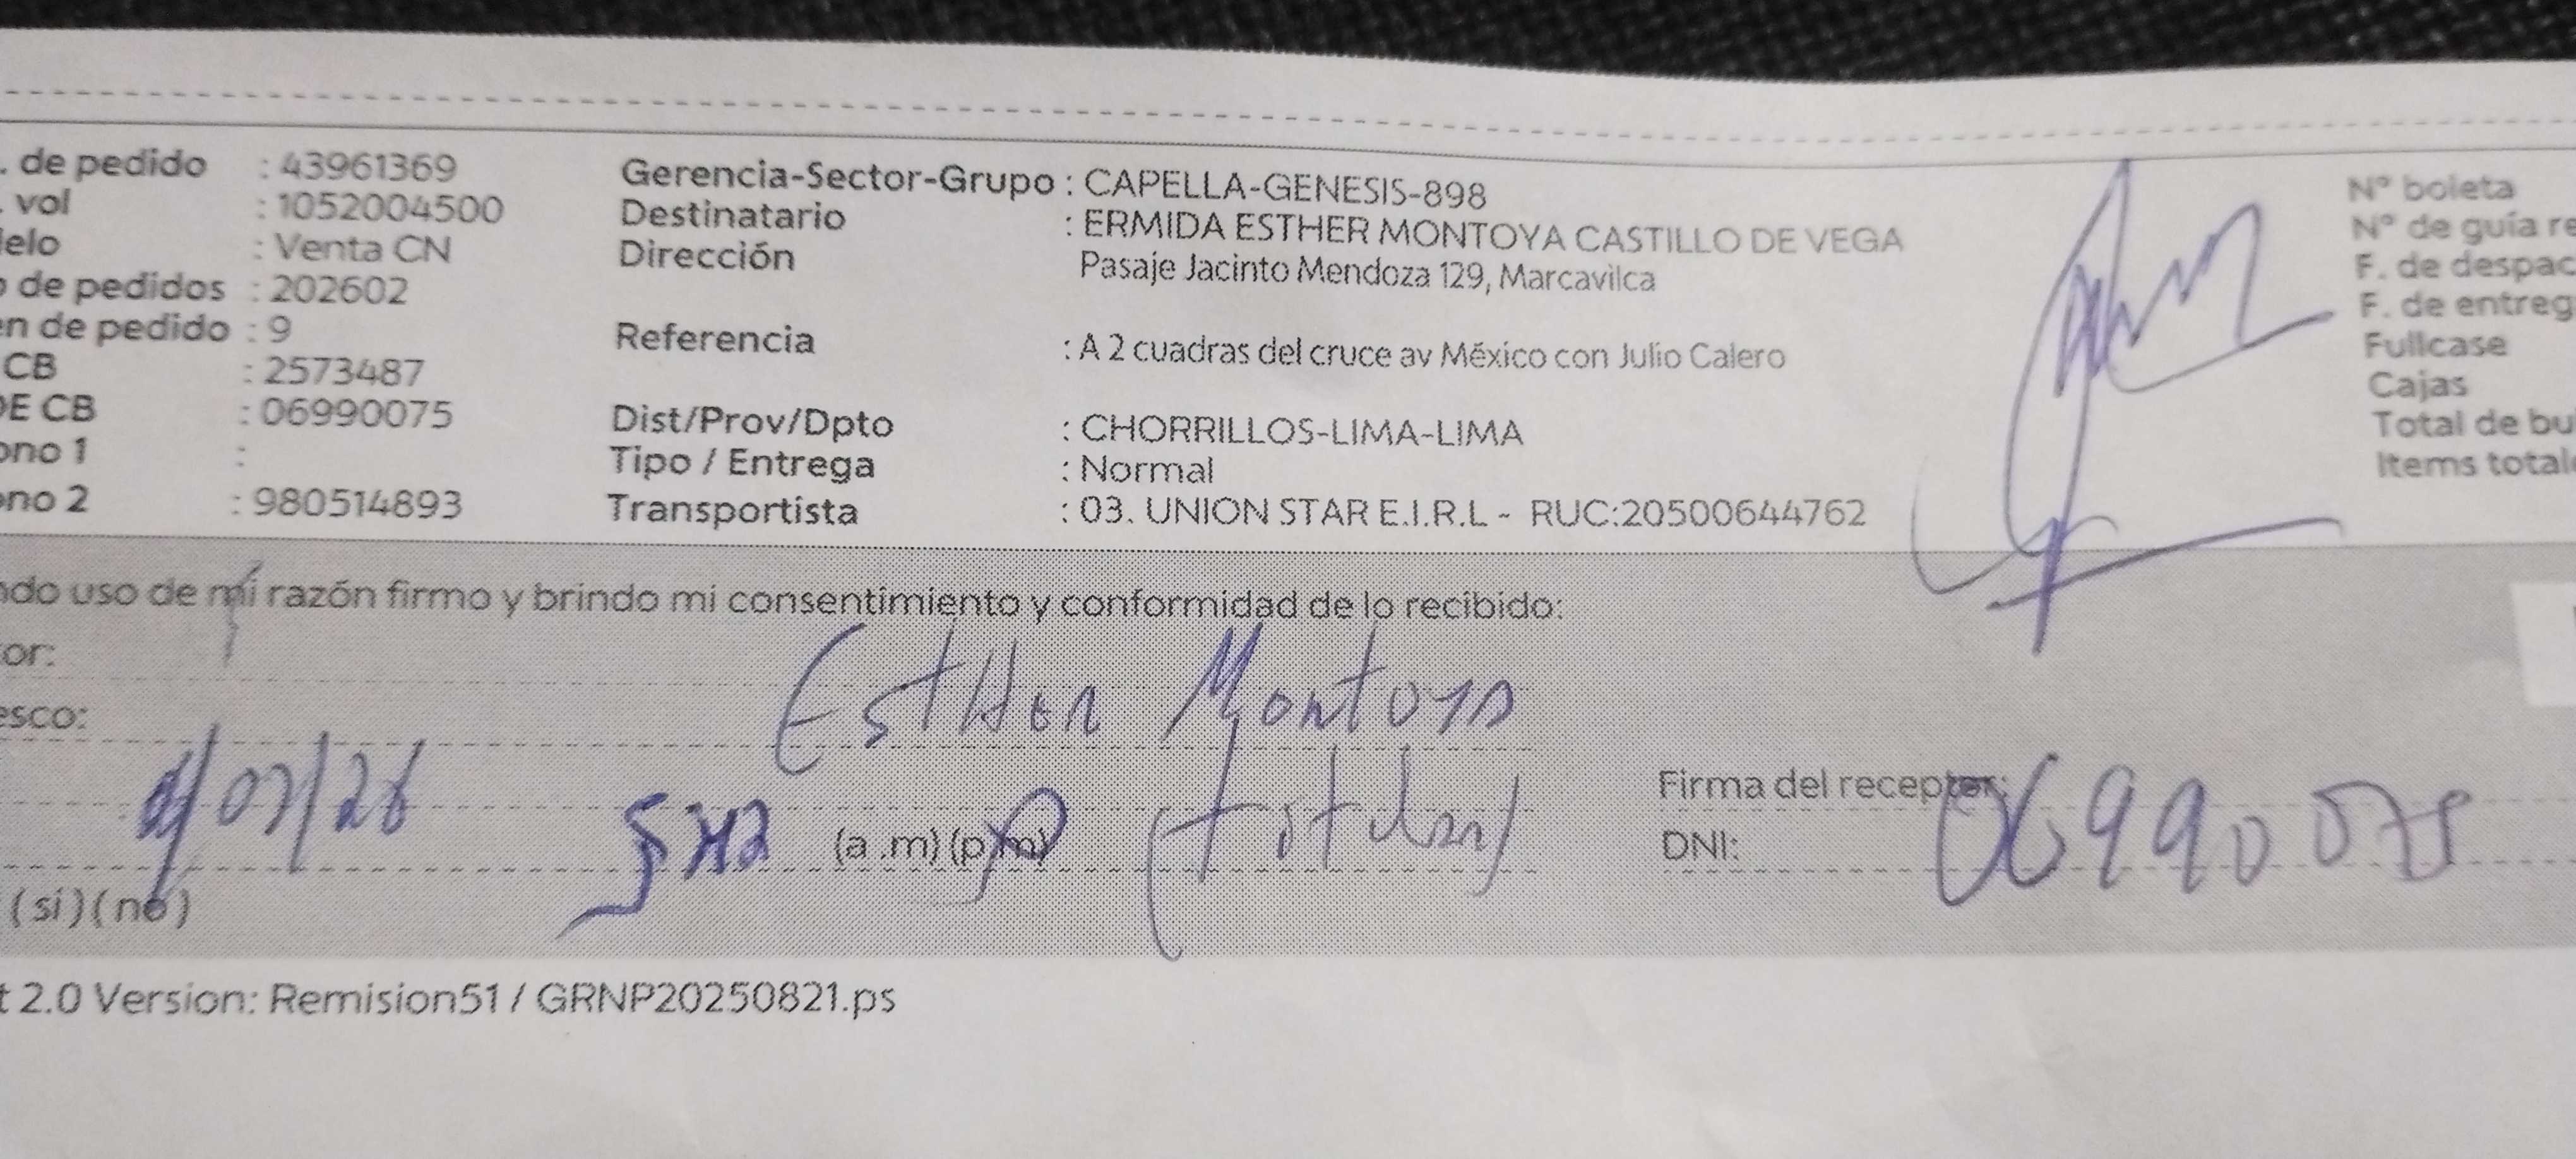 . de pedido : 43961369
. vol : 1052004500
elo : Venta CN
o de pedidos : 202602
en de pedido : 9
CB : 2573487
DE CB : 06990075
ono 1 :
ono 2 : 980514893
Gerencia-Sector-Grupo : CAPELLA-GENESIS-898
Destinatario : ERMIDA ESTHER MONTOYA CASTILLO DE VEGA
Dirección Pasaje Jacinto Mendoza 129, Marcavilca
Referencia : A 2 cuadras del cruce av México con Julio Calero
Dist/Prov/Dpto : CHORRILLOS-LIMA-LIMA
Tipo / Entrega : Normal
Transportista : 03. UNION STAR E.I.R.L - RUC:20500644762
N° boleta
N° de guía re
F. de despac
F. de entreg
Fullcase
Cajas
Total de bu
Items total
ndo uso de mi razón firmo y brindo mi consentimiento y conformidad de lo recibido:
or:
Esther Montoya
esco:
(titular)
(a .m) (p.m)
Firma del receptor:
DNI: 06990075
(si) (no)
t 2.0 Version: Remision51 / GRNP20250821.ps